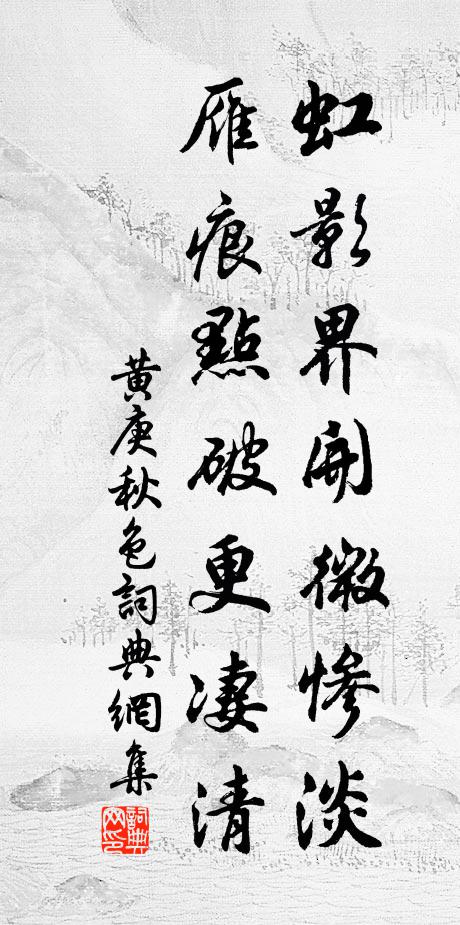 虹影界開微慘淡
雁痕點破更凄清
黃庚秋色詞典網集
詞典网印